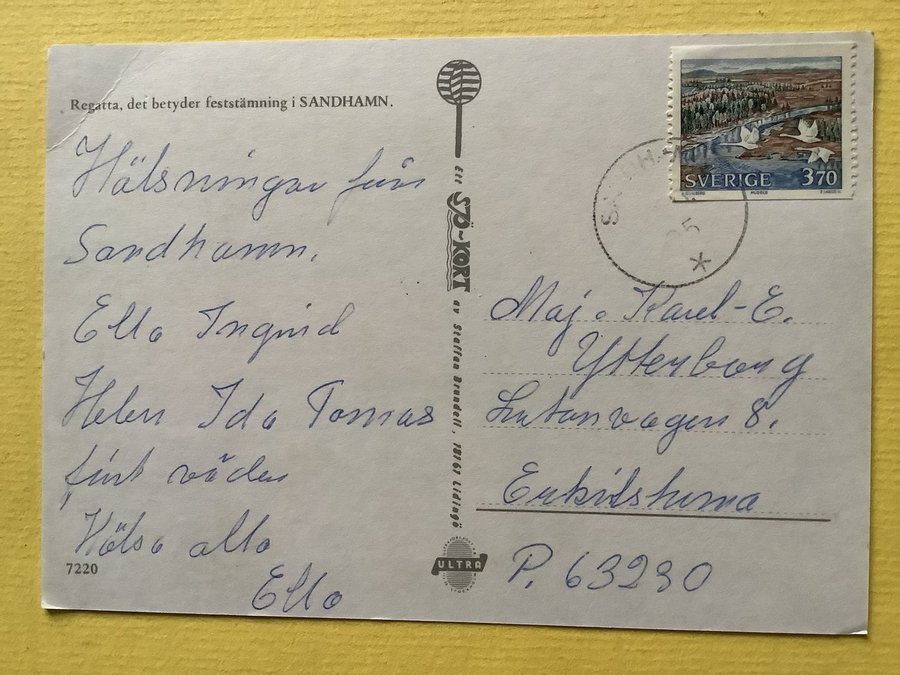 Regatta, det betyder feststämning i SANDHAMN.
Hälsningar från
Sandhamn.
Ella Ingrid
Helen Ida Tomas
fint väder
Hälsa alla
Ella
7220
Ett SJÖ-KORT av Staffan Brundell, 18161 Lidingö
ULTRA
SVERIGE 3.70
Maj o Karl-E.
Ytterborg
8.
Eskilstuna
P. 63230